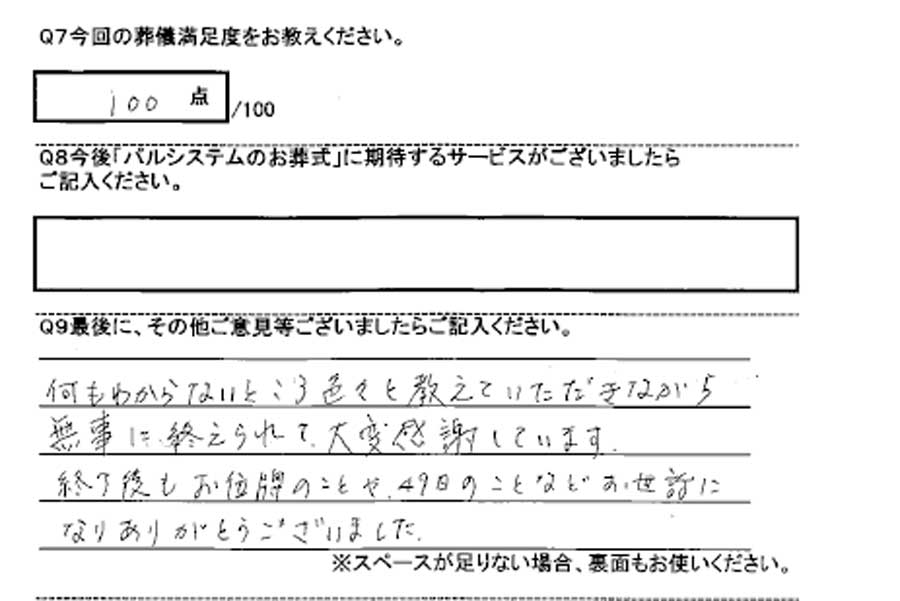 Q7今回の葬儀満足度をお教えください。
100 点 /100
Q8今後「パルシステムのお葬式」に期待するサービスがございましたら
ご記入ください。
Q9最後に、その他ご意見等ございましたらご記入ください。
何もわからないところ色々と教えていただきながら
無事に終えられて、大変感謝しています。
終了後もお位牌のことや、49日のことなどお世話に
なりありがとうございました。
※スペースが足りない場合、裏面もお使いください。